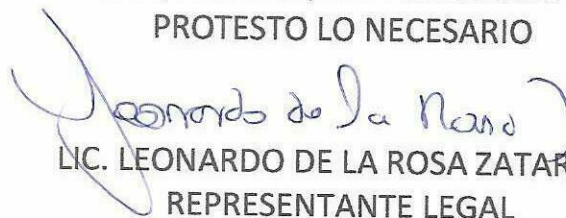 PROTESTO LO NECESARIO
Leonardo de la Rosa
LIC. LEONARDO DE LA ROSA
REPRESENTANTE LEGAL